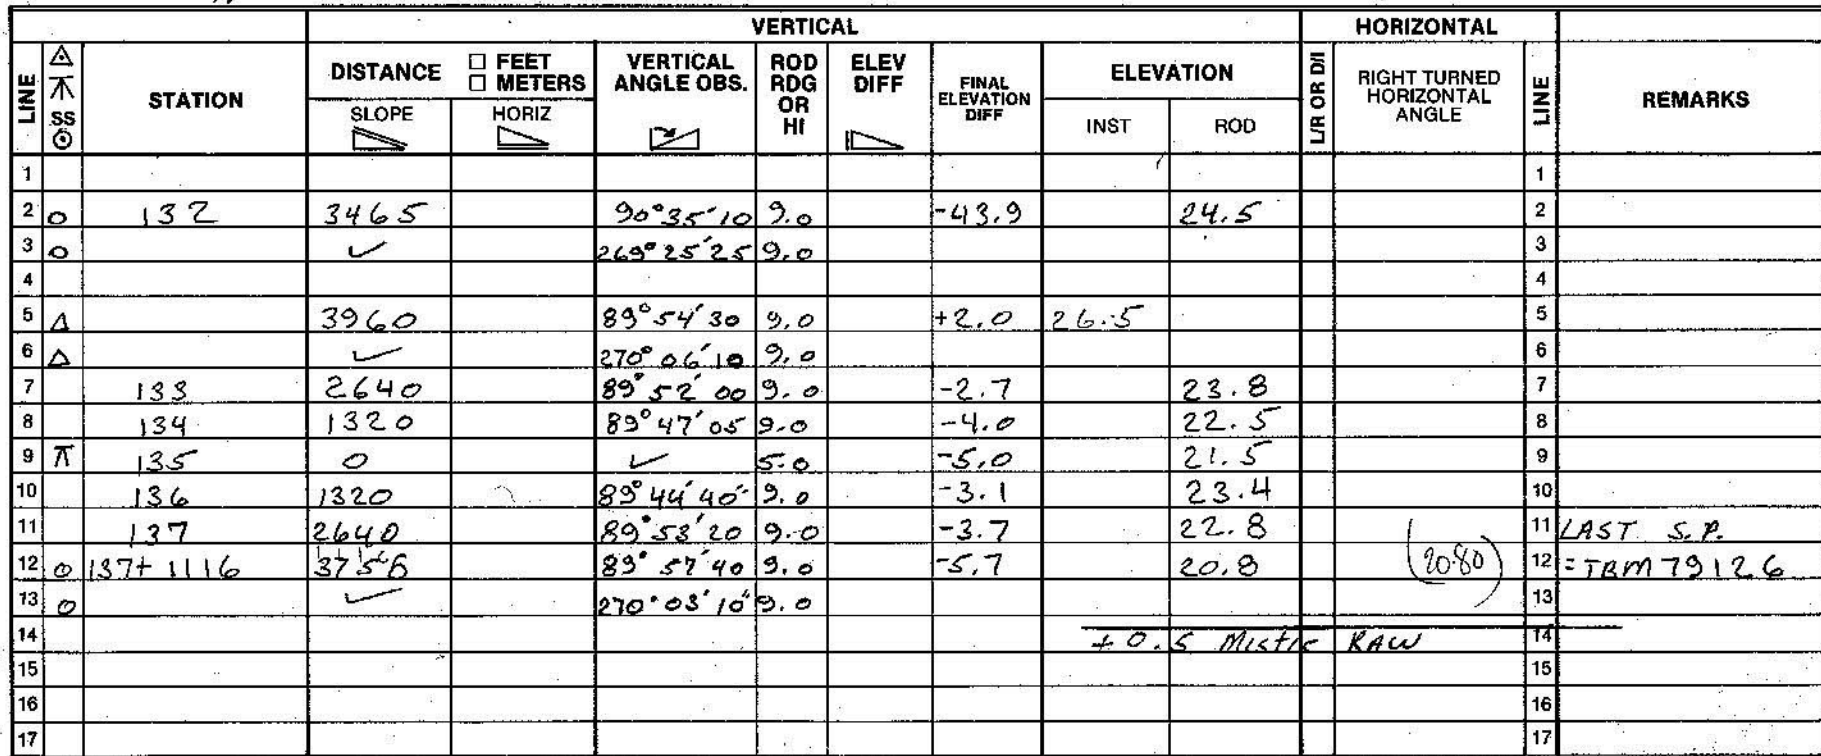 VERTICAL HORIZONTAL
LINE SS STATION DISTANCE □ FEET □ METERS SLOPE HORIZ VERTICAL ANGLE OBS. ROD RDG OR HI ELEV DIFF FINAL ELEVATION DIFF ELEVATION INST ROD L/R OR D/I RIGHT TURNED HORIZONTAL ANGLE LINE REMARKS
1 1
2 O 132 3465 90°35'10 9.0 -43.9 24.5 2
3 O ✓ 269°25'25 9.0 3
4 4
5 Δ 3960 89°54'30 9.0 +2.0 26.5 5
6 Δ ✓ 270°06'10 9.0 6
7 133 2640 89°52'00 9.0 -2.7 23.8 7
8 134 1320 89°47'05 9.0 -4.0 22.5 8
9 135 0 ✓ 5.0 -5.0 21.5 9
10 136 1320 89°44'40" 9.0 -3.1 23.4 10
11 137 2640 89°53'20 9.0 -3.7 22.8 11 LAST S.P.
12 O 137+1116 3756 89°57'40 9.0 -5.7 20.8 (20.80) 12 = TBM 79126
13 O ✓ 270°03'10" 9.0 13
14 +0.5 Mistie RAW 14
15 15
16 16
17 17